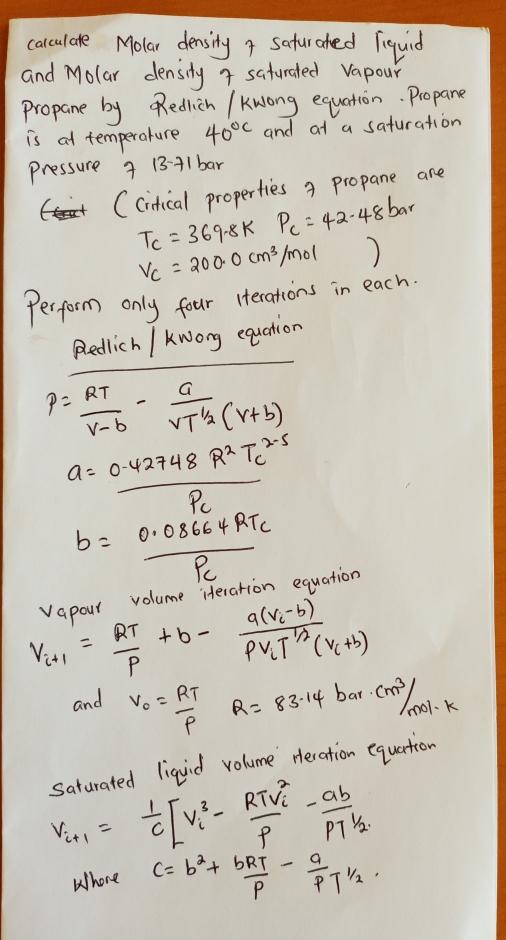 calculate Molar density of saturated liquid
and Molar density of saturated Vapour
Propane by Redlich / Kwong equation. Propane
is at temperature 40°C and at a saturation
Pressure of 13-71 bar
( Critical properties of propane are
Tc = 369.8K Pc = 42.48 bar
Vc = 200.0 cm³/mol )
Perform only four iterations in each.
Redlich / Kwong equation
P = RT/(V-b) - a/(VT^½(V+b))
a = 0.42748 R² Tc^2.5 / Pc
b = 0.08664 RTc / Pc
Vapour volume iteration equation
Vi+1 = RT/P + b - a(Vi-b)/(PViT^½(Vi+b))
and V0 = RT/P R = 83.14 bar.cm³/mol.K
Saturated liquid volume iteration equation
Vi+1 = 1/C [Vi³ - RTVi²/P - ab/PT^½.
Where C = b² + bRT/P - a/PT^½.